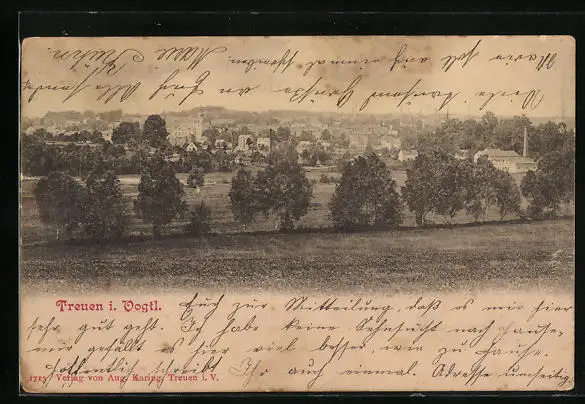 Viele tausend Grüße
Maria soll auch einmal schreiben.
Treuen i. Vogtl. Euch zur Mitteilung, daß es mir hier
sehr gut geht. Ich habe keine Sehnsucht nach Hause,
mir gefällt es hier viel besser, wie zu Hause.
Hoffentlich schreibt Ihr auch einmal. Adresse umseitig.
1713 Verlag von Aug. Karing, Treuen i. V.